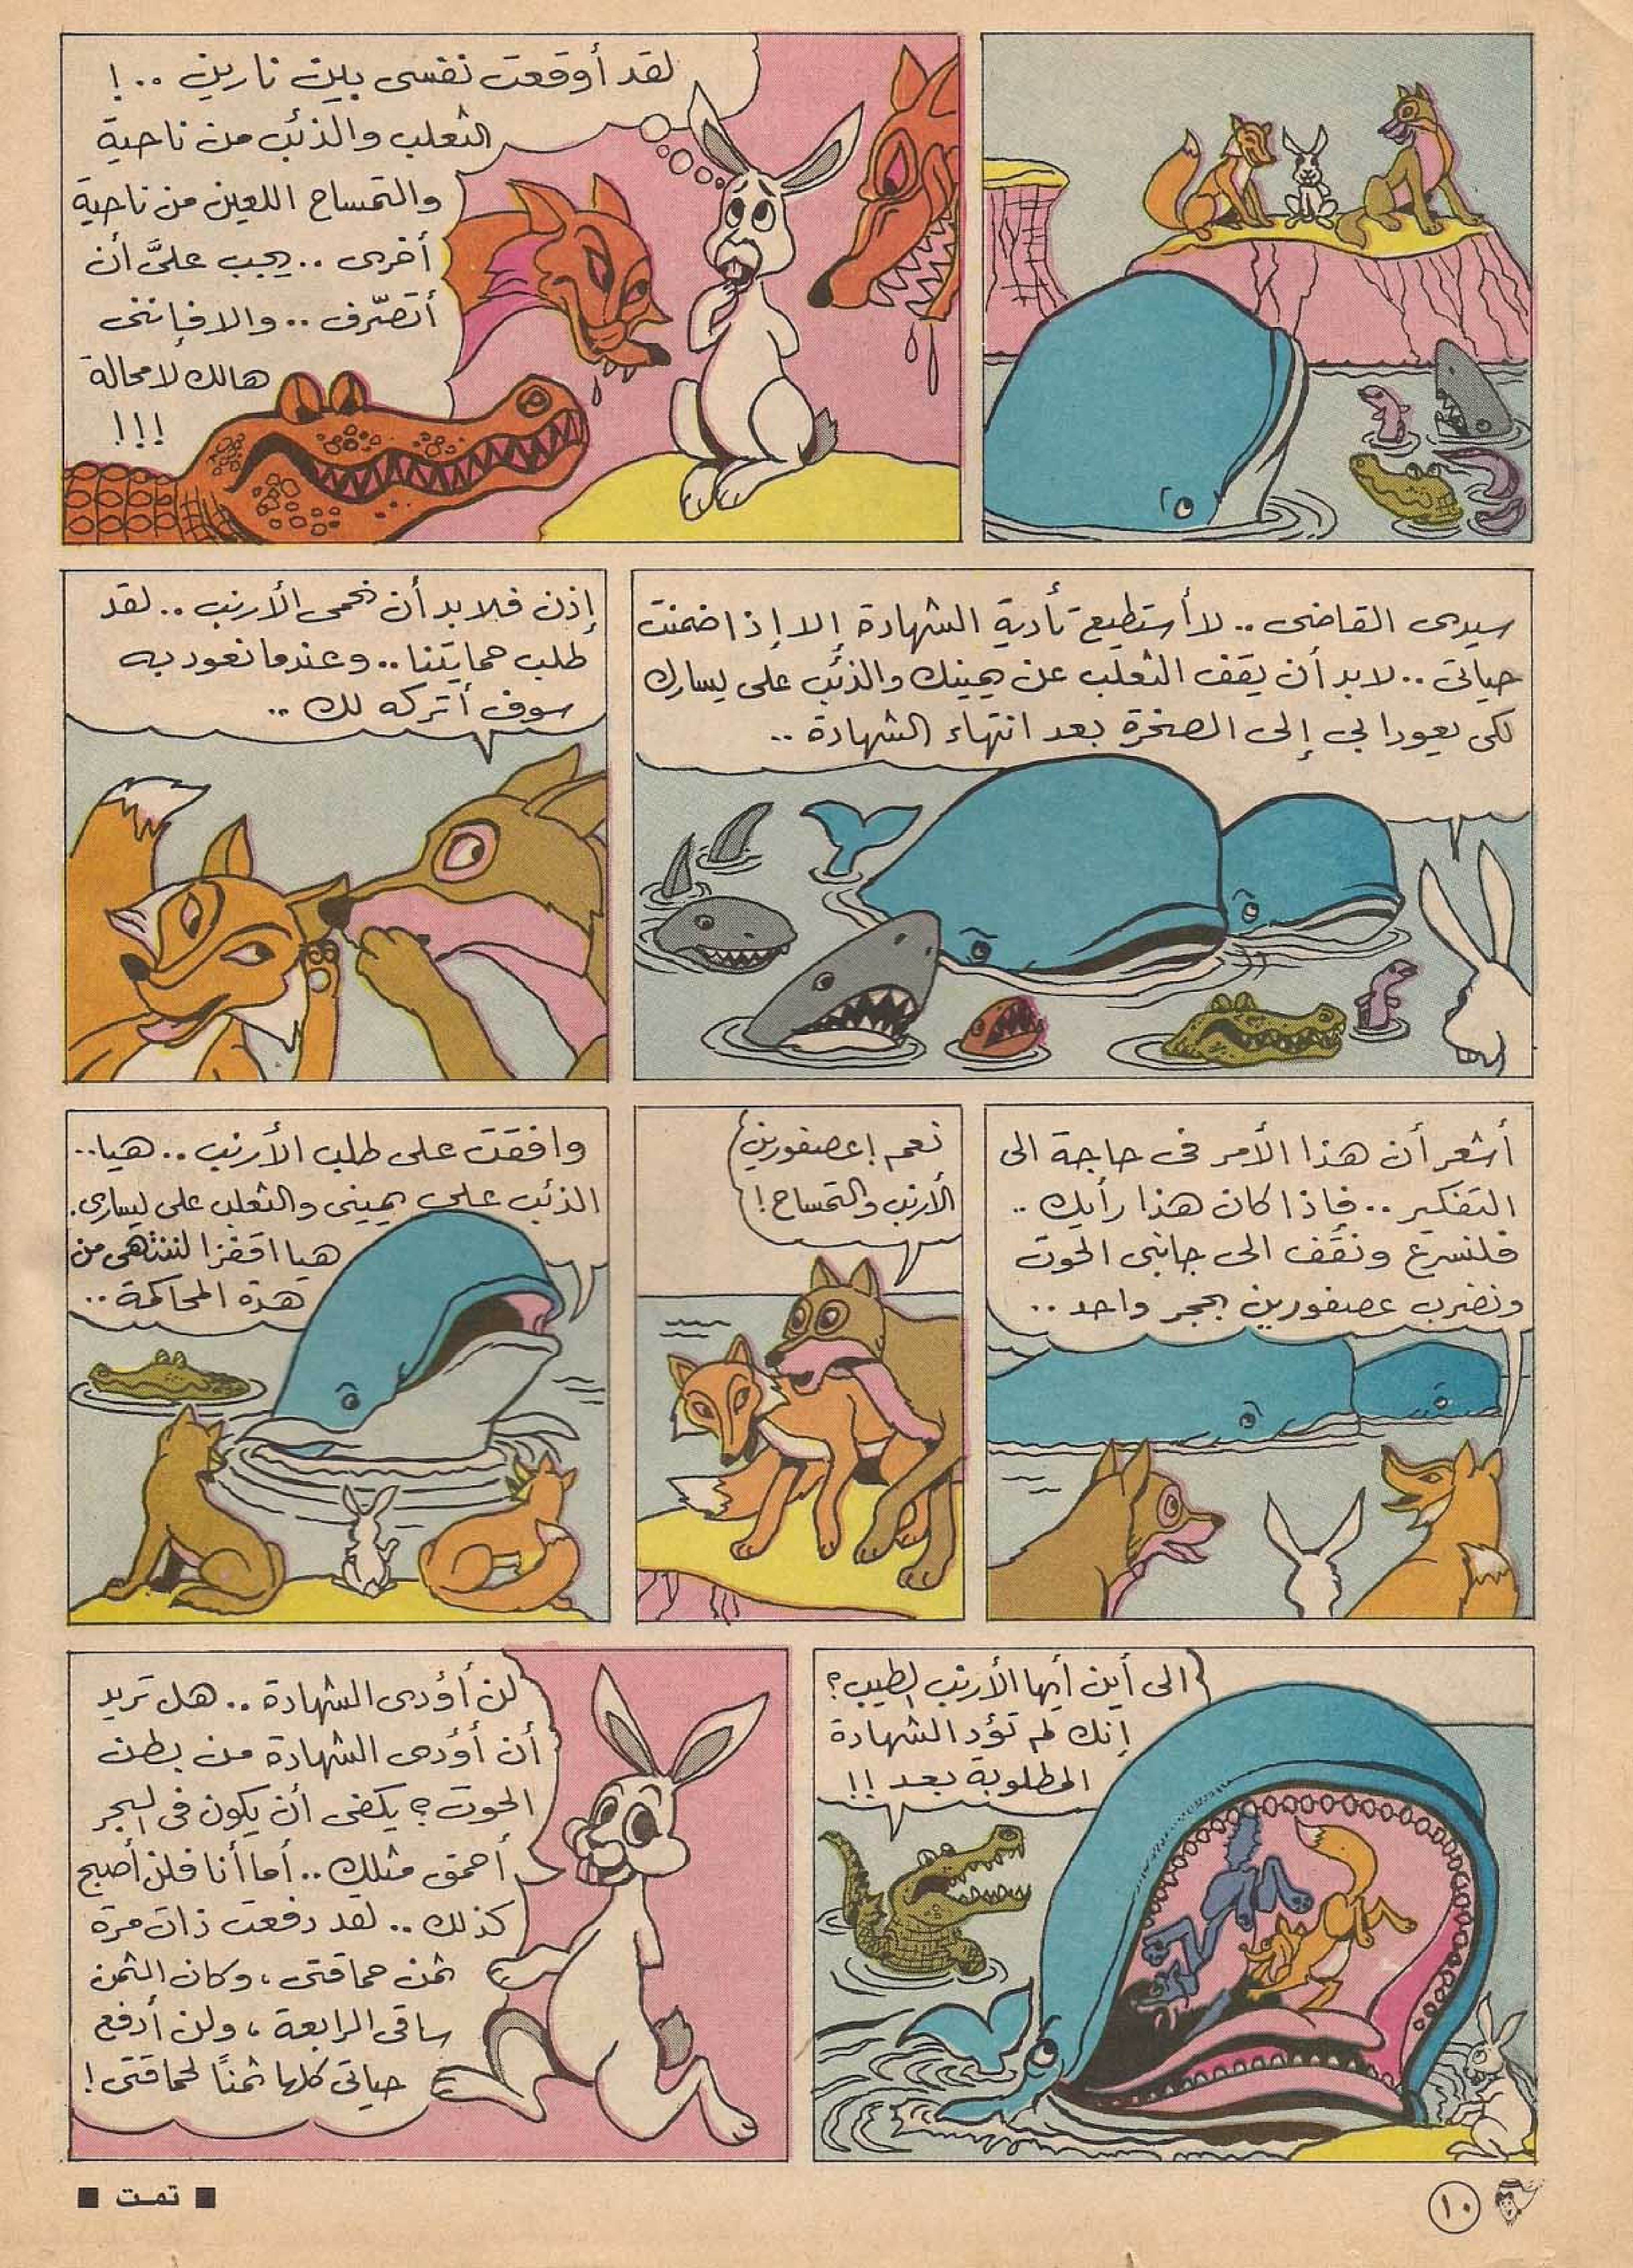 لقد أوقعت نفسى بين نارين ..!
الثعلب والذئب من ناحية
والتمساح اللعين من ناحية
أخرى .. يجب علىَّ أن
أتصرّف .. والا فإننى
هالك لا محالة
!!!
سيدى القاضى .. لا أستطيع تأدية الشهادة إلا إذا ضمنت
حياتى .. لا بد أن يقف الثعلب عن يمينك والذئب على يسارك
لكى يعودا بى إلى الصخرة بعد انتهاء الشهادة ..
إذن فلا بد أن نحمى الأرنب .. لقد
طلب حمايتنا .. وعندما نعود به
سوف أتركه لك ..
أشعر أن هذا الأمر فى حاجة الى
التفكير .. فإذا كان هذا رأيك ..
فلنسرع ونقف الى جانبى الحوت
ونضرب عصفورين بحجر واحد ..
نعم ! عصفورين
الأرنب والتمساح !
وافقت على طلب الأرنب .. هيا..
الذئب على يمينى والثعلب على يسارى.
هيا اقفزا لننتهى من
هذة المحاكمة ..
الى أين أيها الأرنب الطيب ؟
إنك لم تؤد الشهادة
المطلوبة بعد !!
لن أؤدى الشهادة .. هل تريد
أن أؤدى الشهادة من بطن
الحوت ؟ يكفى أن يكون فى البحر
أحمق مثلك .. أما أنا فلن أصبح
كذلك .. لقد دفعت ذات مرة
ثمن حماقتى ، وكان الثمن
ساقى الرابعة ، ولن أدفع
حياتى كلها ثمنًا لحماقتى !
■ تمت ■
١٠